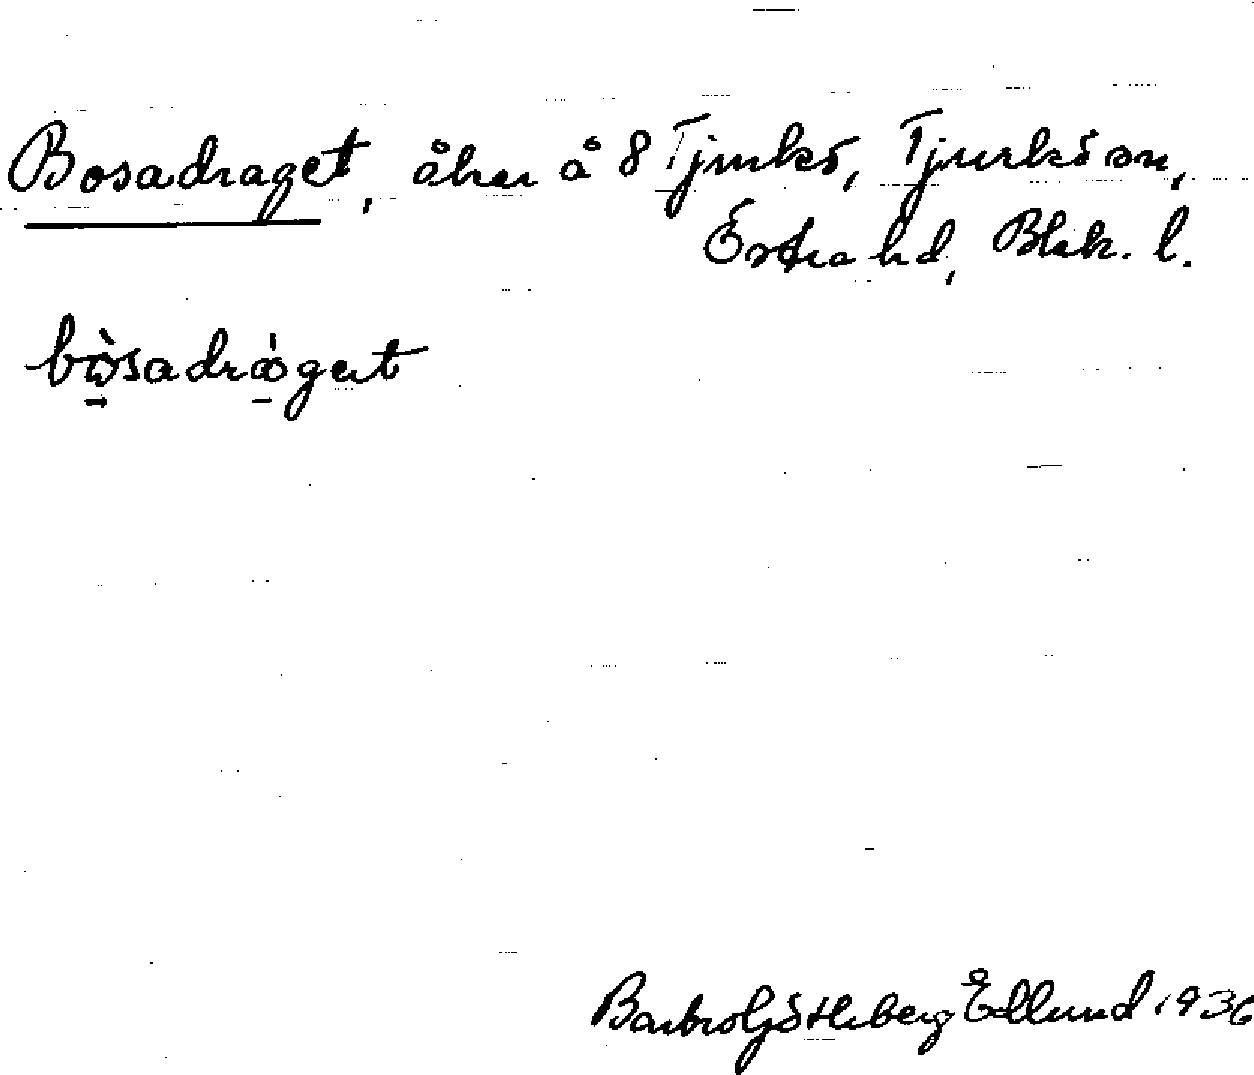 Bosadraget, åker å 8 Tjurkö, Tjurkö sn,
Östra hd, Blek. l.
bòsadráget
Barbro Götlberg Edlund 1936